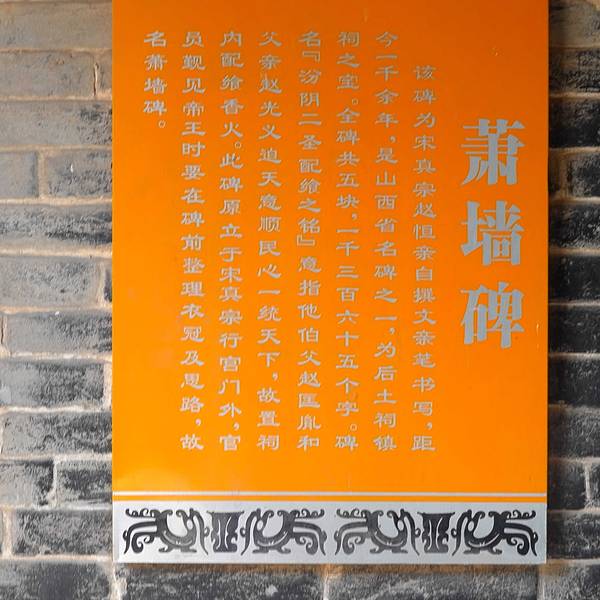 萧墙碑
该碑为宋真宗赵恒亲自撰文亲笔书写，距
今一千余年，是山西省名碑之一，为后土祠镇
祠之宝。全碑共五块，一千三百六十五个字。碑
名『汾阴二圣配飨之铭』意指他伯父赵匡胤和
父亲赵光义迫天意顺民心一统天下，故置祠
内配飨香火。此碑原立于宋真宗行宫门外，官
员觐见帝王时要在碑前整理衣冠及思路，故
名萧墙碑。